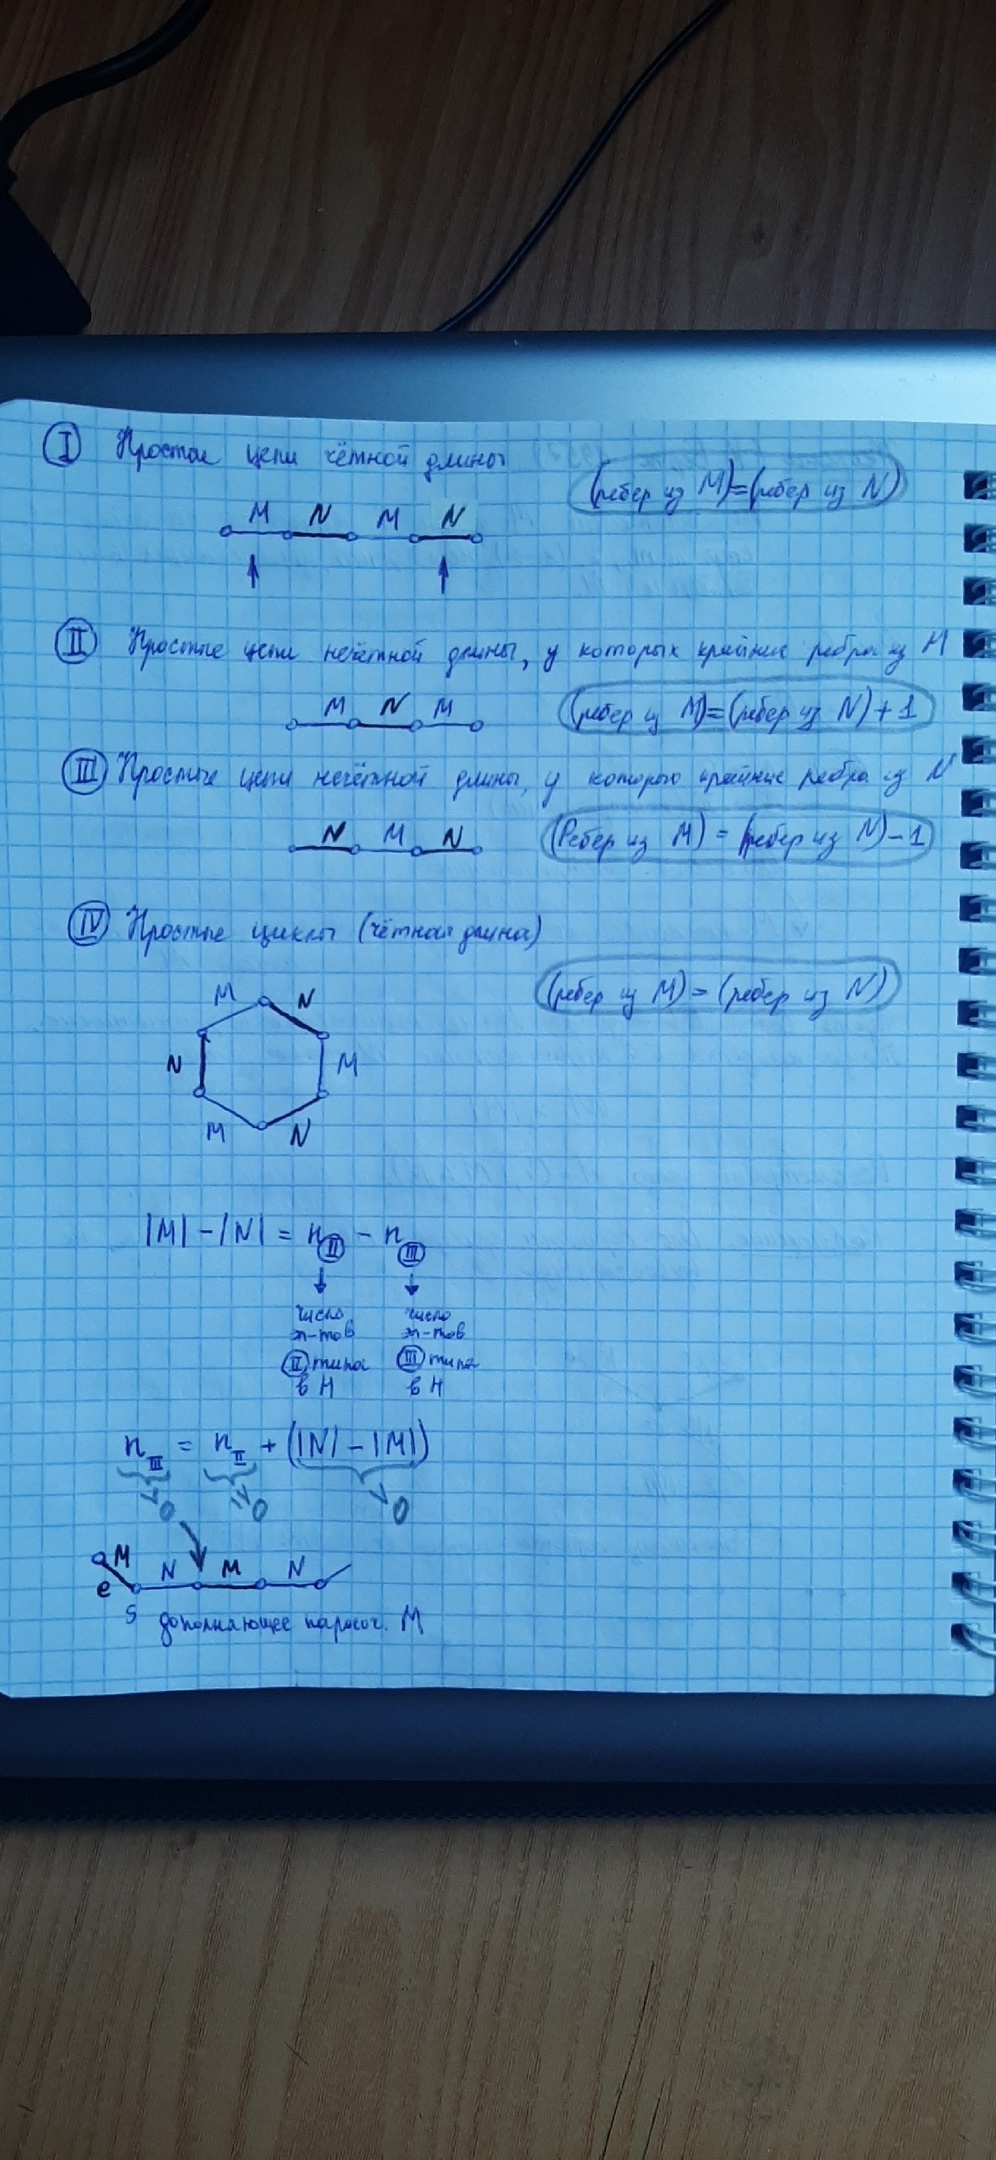 I Простые цепи чётной длины
(ребер из M)=(ребер из N)
M N M N
II Простые цепи нечётной длины, у которых крайние ребра из M
M N M
(ребер из M)=(ребер из N)+1
III Простые цепи нечётной длины, у которых крайние ребра из N
N M N
(Ребер из M) = (ребер из N)-1
IV Простые циклы (чётная длина)
(ребер из M) = (ребер из N)
M N
N M
M N
|M| - |N| = n II - n III
число число
эл-тов эл-тов
II типа III типа
в H в H
n III = n II + (|N| - |M|)
>0 ≥0 >0
M N M N
e
S дополняющее паросоч. M